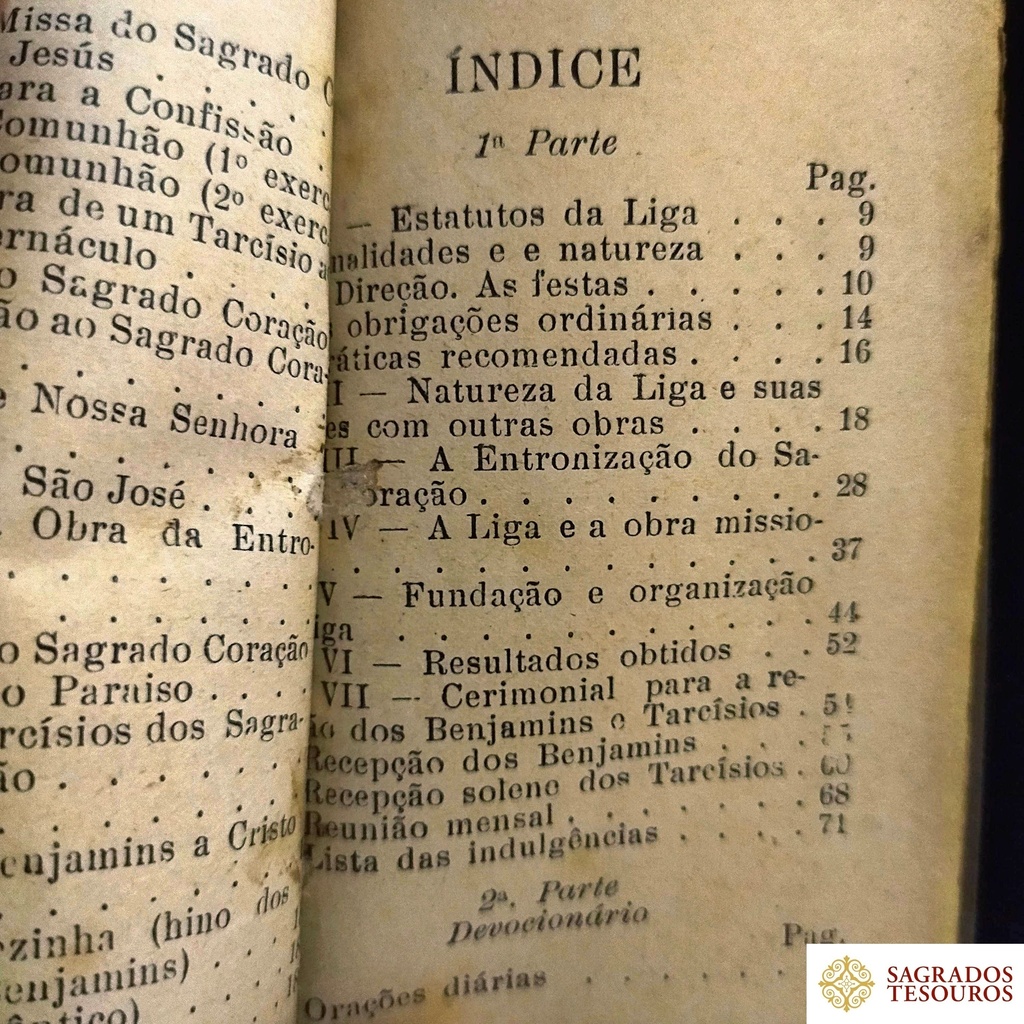 Missa do Sagrado
Jesús . . . .
ara a Confissão .
omunhão (1º exerc
omunhão (2º exerc
ra de um Tarcísio a
ernáculo . . . .
o Sagrado Coração
ão ao Sagrado Cora-
. . . . . . .
e Nossa Senhora
. . . . . . .
São José . . .
Obra da Entro-
. . . . . . .
o Sagrado Coração
o Paraiso . . . .
rcísios dos Sagra-
ão . . . . . .
enjamins a Cristo
zinha (hino dos
enjamins) . . .
ântico) . . .
ÍNDICE
1ª Parte
Pag.
— Estatutos da Liga . . . 9
nalidades e e natureza . . . 9
Direção. As festas . . . . . 10
obrigações ordinárias . . . 14
áticas recomendadas . . . . 16
I — Natureza da Liga e suas
es com outras obras . . . . 18
III — A Entronização do Sa-
oração . . . . . . . . . 28
IV — A Liga e a obra missio-
. . . . . . . . . . . . 37
V — Fundação e organização
iga . . . . . . . . . . 44
VI — Resultados obtidos . . 52
VII — Cerimonial para a re-
ão dos Benjamins e Tarcísios .
Recepção dos Benjamins . . .
Recepção solene dos Tarcísios . 60
Reunião mensal . . . . . . 68
Lista das indulgências . . . . 71
2ª. Parte
Devocionário
Pag.
Orações diárias . . . . .
SAGRADOS
TESOUROS